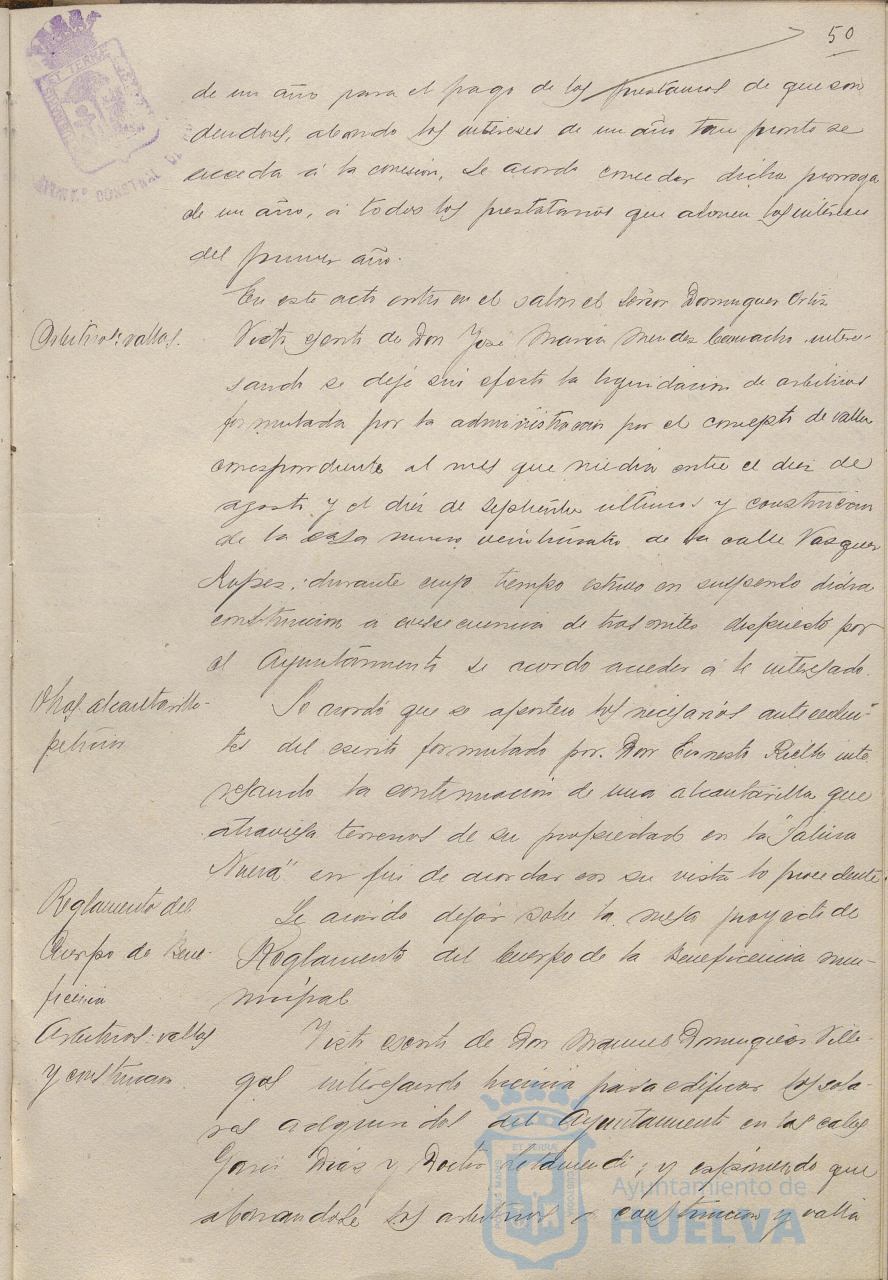 50
de un año para el pago de los prestamos de que son
deudores, abonando los intereses de un año tan pronto se
acceda á la concesion, se acordó conceder dicha prorroga
de un año, á todos los prestatarios que abonen los intereses
del primer año.
En este acto entró en el salon el Señor Dominguez Ortiz
Arbitrios: vallas.
Visto escrito de Don José Maria Mendez Camacho intere-
sando se deje sin efecto la liquidacion de arbitrios
formulada por la administracion por el concepto de vallas
correspondiente al mes que media entre el diez de
agosto y el diez de septiembre ultimos y construccion
de la casa numero veinticuatro de la calle Vazquez
Lopez; durante cuyo tiempo estuvo en suspenso dicha
construccion a consecuencia de tramites dispuesto por
el Ayuntamiento se acordó acceder á lo interesado.
Obras alcantarilla-
peticion
Se acordó que se aporten los necesarios anteceden-
tes del escrito formulado por Don Ernesto inte
resando la continuacion de una alcantarilla que
atraviesa terrenos de su propiedad en la "Salina
Nueva" en fin de acordar con su vista lo procedente.
Reglamento del
Cuerpo de Bene-
ficencia
Se acordó dejar sobre la mesa proyecto de
Reglamento del Cuerpo de la Beneficencia mu-
nicipal
Arbitrios: vallas
y construccion
Visto escrito de Don Manuel Dominguez Ville-
gas interesando licencia para edificar los sola-
res adquiridos del Ayuntamiento en las calles
Garci Diaz y Doctor Letamendi; y exponiendo que
abonandose los arbitrios de construccion y valla
ET TERRAE
Ayuntamiento de
HUELVA